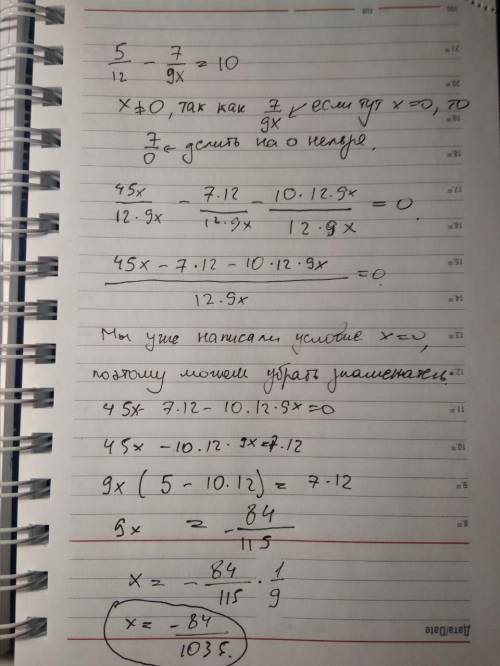 5/12 − 7/9x = 10
x≠0, так как 7/9x ← если тут x=0, то
7/0 ← делить на 0 нельзя.
45x/12·9x − 7·12/12·9x − 10·12·9x/12·9x = 0
45x − 7·12 − 10·12·9x/12·9x = 0
Мы уже написали условие x=0,
поэтому можем убрать знаменатель.
45x− 7.12 − 10.12·9x=0
45x − 10.12·9x=7.12
9x ( 5 − 10.12) = 7·12
9x = − 84/115
x = − 84/115 · 1/9
x= − 84/1035.
Дата/Date